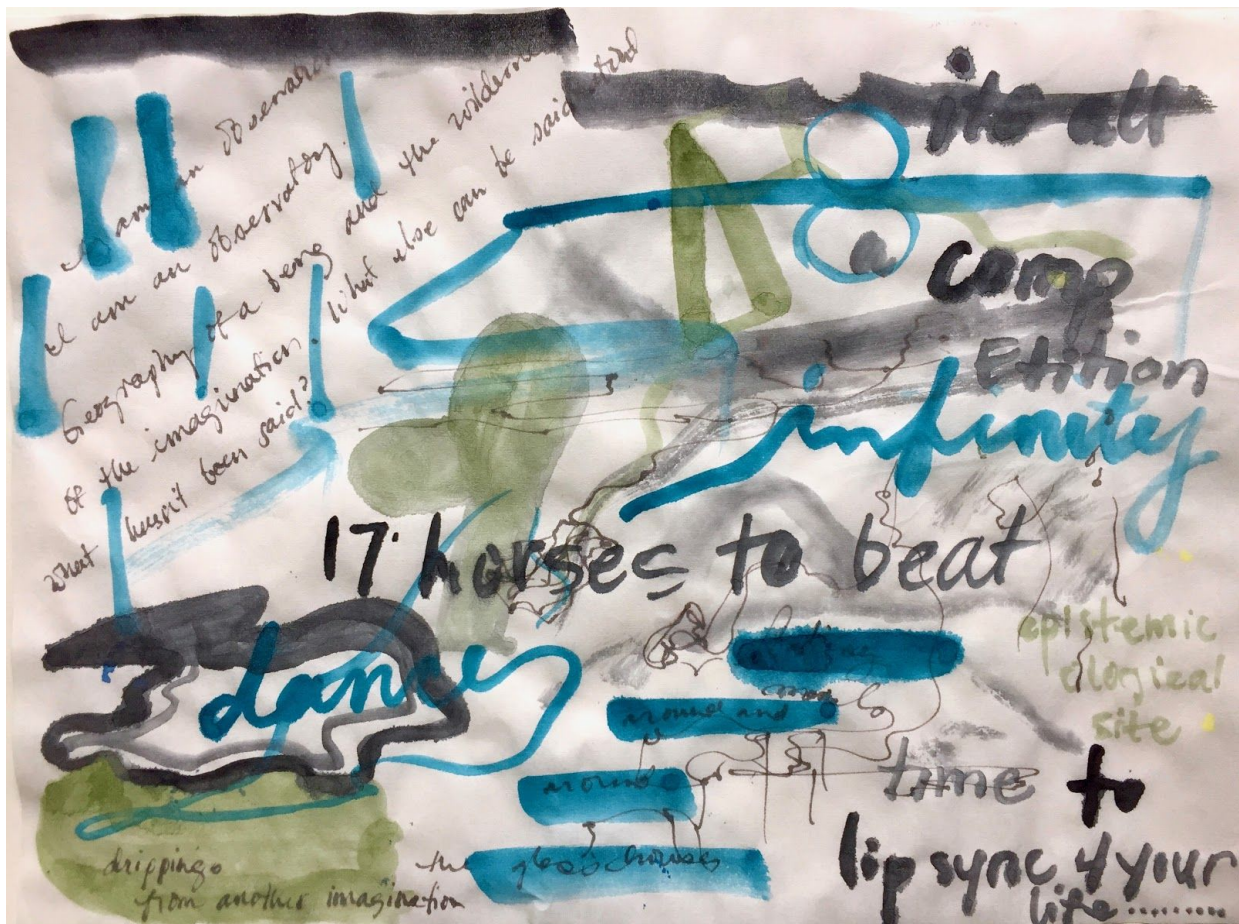 I am an Observatory.
I am an Observatory.
Geography of a being and the wilderness
of the imagination. What else can be said and
what hasn't been said?
its all
a comp
Etition
infinity
17 horses to beat
dance
epistemic
ological
site
around and
around
the glass houses
time to
lip sync 4 your
life.........
drippings
from another imagination